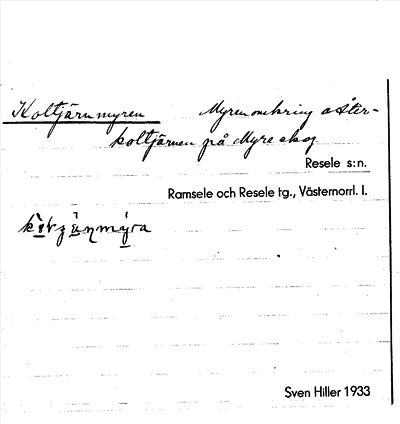 Koltjärnmyren Myren omkring Åter-
koltjärnen på Myre skog
Resele s:n.
Ramsele och Resele tg., Västernorrl. l.
Sven Hiller 1933